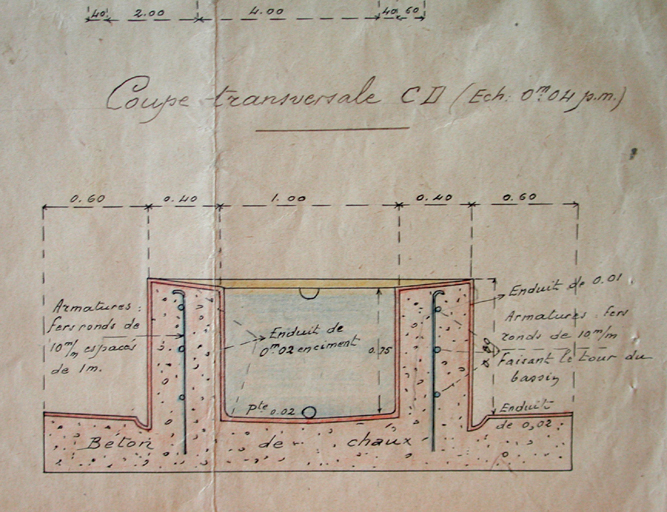 40 2.00 4.00 40 60
Coupe transversale C D (Ech. 0ᵐ04 p.m.)
0.60 0.40 1.00 0.40 0.60
Armatures :
fers ronds de
10 m/m espacés
de 1m.
Enduit de
0ᵐ02 en ciment
0.75
Enduit de 0.01
Armatures : fers
ronds de 10 m/m
Faisant le tour du
bassin
pte 0.02
Enduit
de 0,02
Béton de chaux